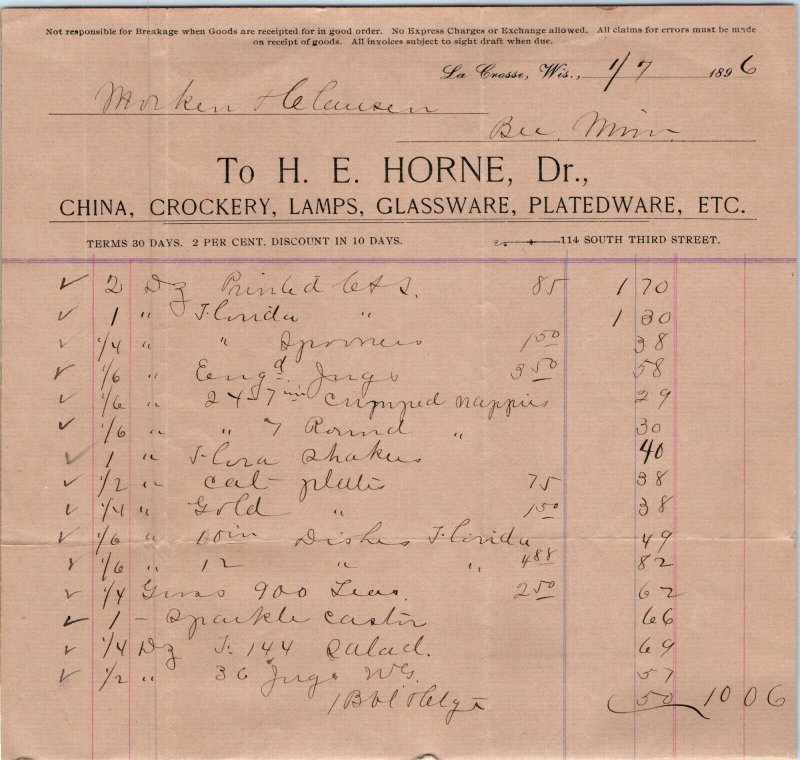 Not responsible for Breakage when Goods are receipted for in good order. No Express Charges or Exchange allowed. All claims for errors must be made
on receipt of goods. All invoices subject to sight draft when due.
La Crosse, Wis., 1/7 1896
Morken & Clausen
Bee, Minn.
To H. E. HORNE, Dr.,
CHINA, CROCKERY, LAMPS, GLASSWARE, PLATEDWARE, ETC.
TERMS 30 DAYS. 2 PER CENT. DISCOUNT IN 10 DAYS. 114 SOUTH THIRD STREET.
✓ 2 Dz Printed 85 1 70
✓ 1 " Florida " 1 30
✓ 1/4 " " Spooners 1 50 38
✓ 1/6 " Eengd Jugs 3 50 58
✓ 1/6 " 24-7 in Crimped nappies 29
✓ 1/6 " " 7 Round " 30
✓ 1 " Flora Shakers 40
✓ 1/2 " cal plates 75 38
✓ 1/4 " Gold " 1 50 38
✓ 1/6 " 10in Dishes Florida 49
✓ 1/6 " 12 " " 4 88 82
✓ 1/4 Gross 900 Teas. 2 50 62
✓ 1 - Sparkle castor 66
✓ 1/4 Dz F. 144 Salad. 69
✓ 1/2 " 36 Jugs WG. 57
1 Bbl & Ctge 50 10 06